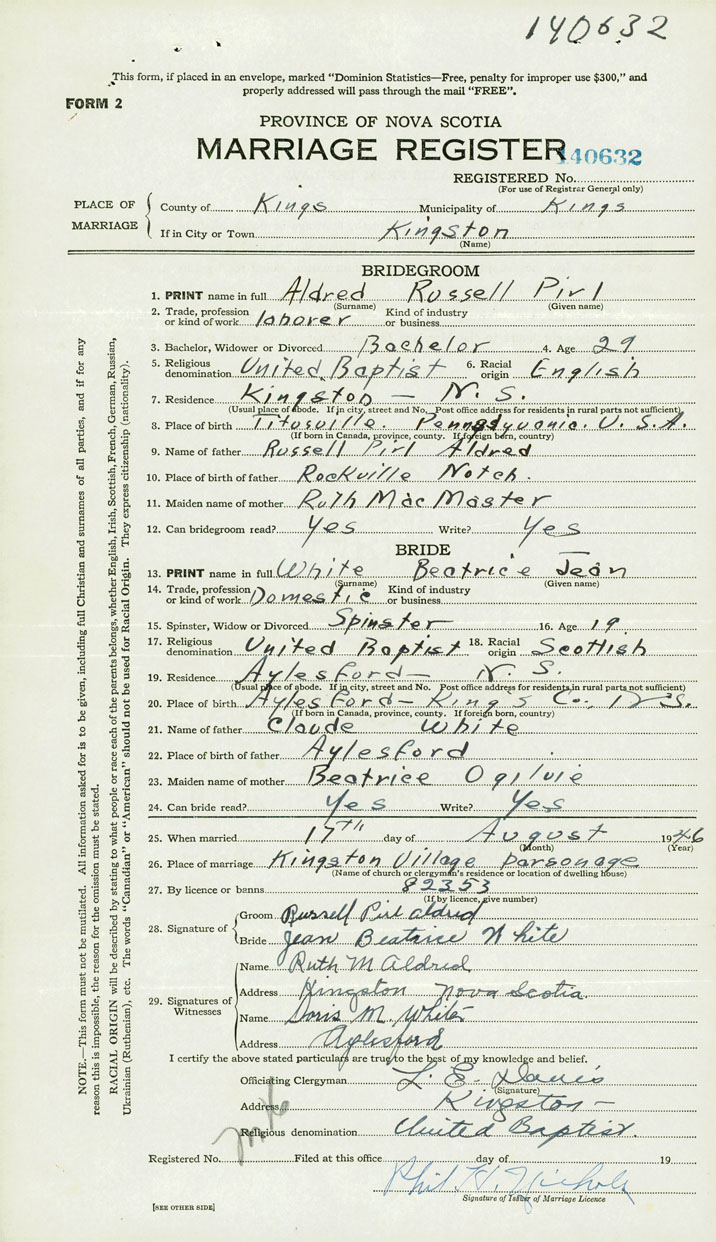 140632
This form, if placed in an envelope, marked "Dominion Statistics—Free, penalty for improper use $300," and
properly addressed will pass through the mail "FREE".
FORM 2
PROVINCE OF NOVA SCOTIA
MARRIAGE REGISTER
140632
REGISTERED No.
(For use of Registrar General only)
PLACE OF MARRIAGE
County of Kings Municipality of Kings
If in City or Town Kingston
(Name)
BRIDEGROOM
1. PRINT name in full Aldred Russell Pirl
(Surname) (Given name)
2. Trade, profession or kind of work laborer Kind of industry or business
3. Bachelor, Widower or Divorced Bachelor 4. Age 29
5. Religious denomination United Baptist 6. Racial origin English
7. Residence Kingston — N. S.
(Usual place of abode. If in city, street and No. Post office address for residents in rural parts not sufficient)
8. Place of birth Titusville. Pennsylvania. U. S. A.
(If born in Canada, province, county. If foreign born, country)
9. Name of father Russell Pirl Aldred
10. Place of birth of father Rockville Notch.
11. Maiden name of mother Ruth MacMaster
12. Can bridegroom read? Yes Write? Yes
BRIDE
13. PRINT name in full White Beatrice Jean
(Surname) (Given name)
14. Trade, profession or kind of work Domestic Kind of industry or business
15. Spinster, Widow or Divorced Spinster 16. Age 19
17. Religious denomination United Baptist 18. Racial origin Scottish
19. Residence Aylesford — N. S.
(Usual place of abode. If in city, street and No. Post office address for residents in rural parts not sufficient)
20. Place of birth Aylesford — King's Co., N.S.
(If born in Canada, province, county. If foreign born, country)
21. Name of father Claude White
22. Place of birth of father Aylesford
23. Maiden name of mother Beatrice Ogilvie
24. Can bride read? Yes Write? Yes
25. When married 17th day of August 1946
(Month) (Year)
26. Place of marriage Kingston Village parsonage
(Name of church or clergyman's residence or location of dwelling house)
27. By licence or banns 82353
(If by licence, give number)
28. Signature of
Groom Russell Pirl Aldred
Bride Jean Beatrice White
29. Signatures of Witnesses
Name Ruth M Aldred
Address Kingston Nova Scotia.
Name Doris M. White
Address Aylesford
I certify the above stated particulars are true to the best of my knowledge and belief.
Officiating Clergyman L. E. Davis
(Signature)
Address Kingston —
Religious denomination United Baptist.
Registered No. Filed at this office day of 19
Phil H. Nichols
Signature of Issuer of Marriage Licence
[SEE OTHER SIDE]
NOTE.—This form must not be mutilated. All information asked for is to be given, including full Christian and surnames of all parties, and if for any
reason this is impossible, the reason for the omission must be stated.
RACIAL ORIGIN will be described by stating to what people or race each of the parents belongs, whether English, Irish, Scottish, French, German, Russian,
Ukrainian (Ruthenian), etc. The words "Canadian" or "American" should not be used for Racial Origin. They express citizenship (nationality).